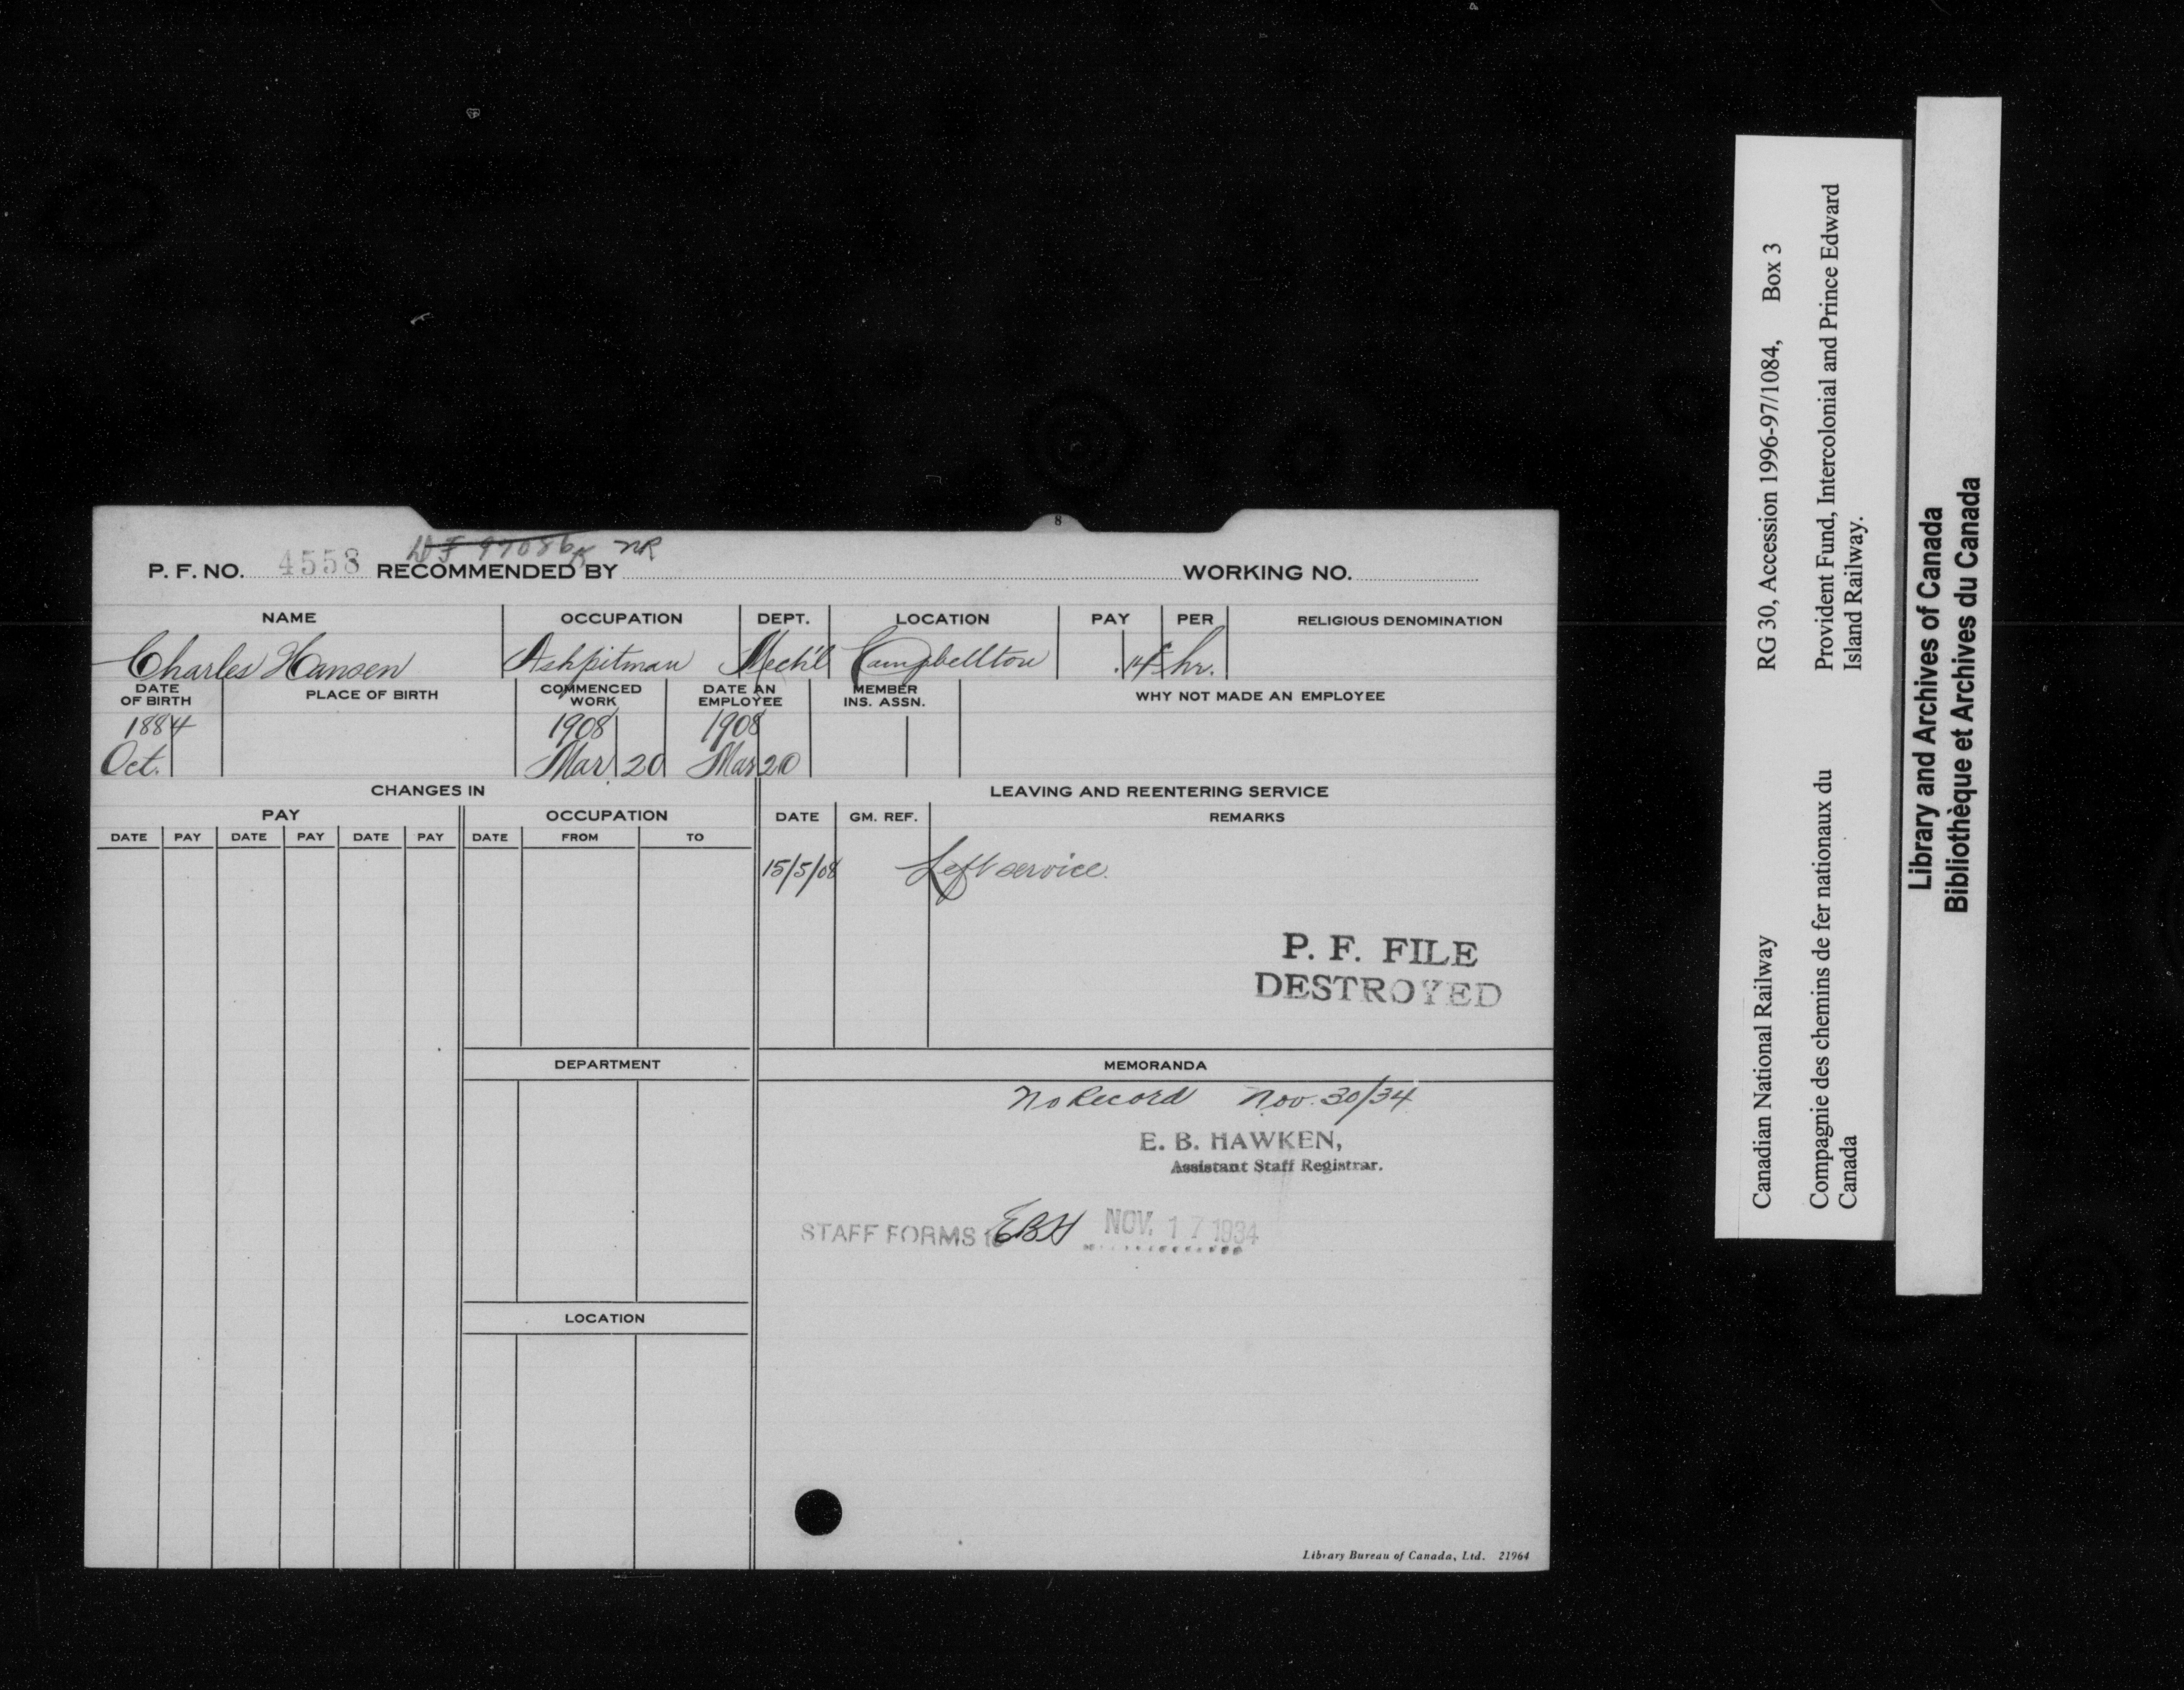 8
97086 NR
P. F. NO. 4558 RECOMMENDED BY WORKING NO.
NAME OCCUPATION DEPT. LOCATION PAY PER RELIGIOUS DENOMINATION
Charles Hansen Ashpitman Mech'l Campbellton .14 hr.
DATE OF BIRTH PLACE OF BIRTH COMMENCED WORK DATE AN EMPLOYEE MEMBER INS. ASSN. WHY NOT MADE AN EMPLOYEE
1884 1908 1908
Oct. Mar 20 Mar 20
CHANGES IN LEAVING AND REENTERING SERVICE
PAY OCCUPATION DATE GM. REF. REMARKS
DATE PAY DATE PAY DATE PAY DATE FROM TO
15/5/08 Left service.
P. F. FILE
DESTROYED
DEPARTMENT MEMORANDA
No Record Nov. 30/34
E. B. HAWKEN,
Assistant Staff Registrar.
STAFF FORMS to EBH NOV. 17 1934
LOCATION
Library Bureau of Canada, Ltd. 21964
Canadian National Railway RG 30, Accession 1996-97/1084, Box 3
Compagnie des chemins de fer nationaux du Provident Fund, Intercolonial and Prince Edward
Canada Island Railway.
Library and Archives of Canada
Bibliothèque et Archives du Canada